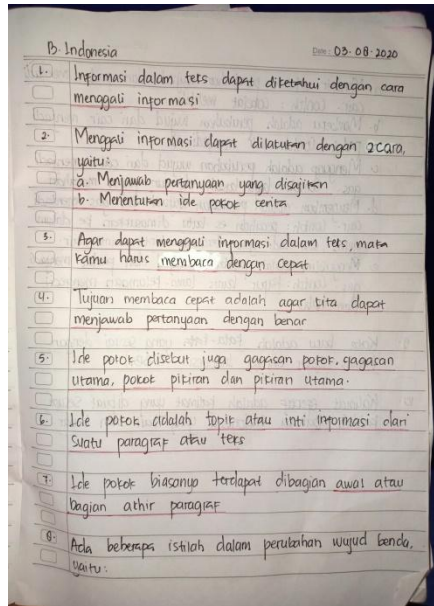 B. Indonesia
Date: 03-08-2020
1. Informasi dalam teks dapat diketahui dengan cara
menggali informasi
2. Menggali informasi dapat dilakukan dengan 2 cara,
yaitu:
a. Menjawab pertanyaan yang disajikan
b. Menentukan ide pokok cerita
3. Agar dapat menggali informasi dalam teks, maka
kamu harus membaca dengan cepat
4. Tujuan membaca cepat adalah agar kita dapat
menjawab pertanyaan dengan benar
5. Ide pokok disebut juga gagasan pokok, gagasan
utama, pokok pikiran dan pikiran utama.
6. Ide pokok adalah topik atau inti informasi dari
suatu paragraf atau teks
7. Ide pokok biasanya terdapat dibagian awal atau
bagian akhir paragraf
8. Ada beberapa istilah dalam perubahan wujud benda,
yaitu: